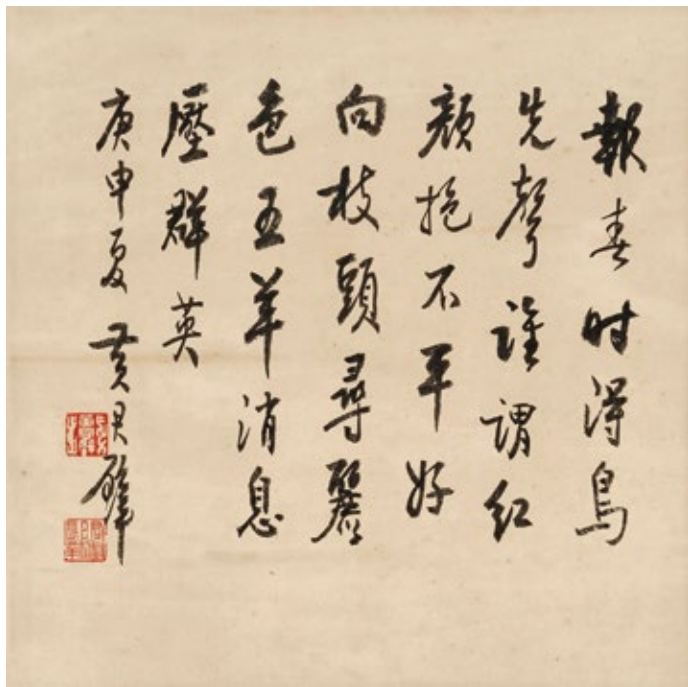 報春時得鳥
先聲誰謂紅
顏抱不平好
向枝頭尋麗
色五羊消息
壓群英
庚申夏 黃君璧